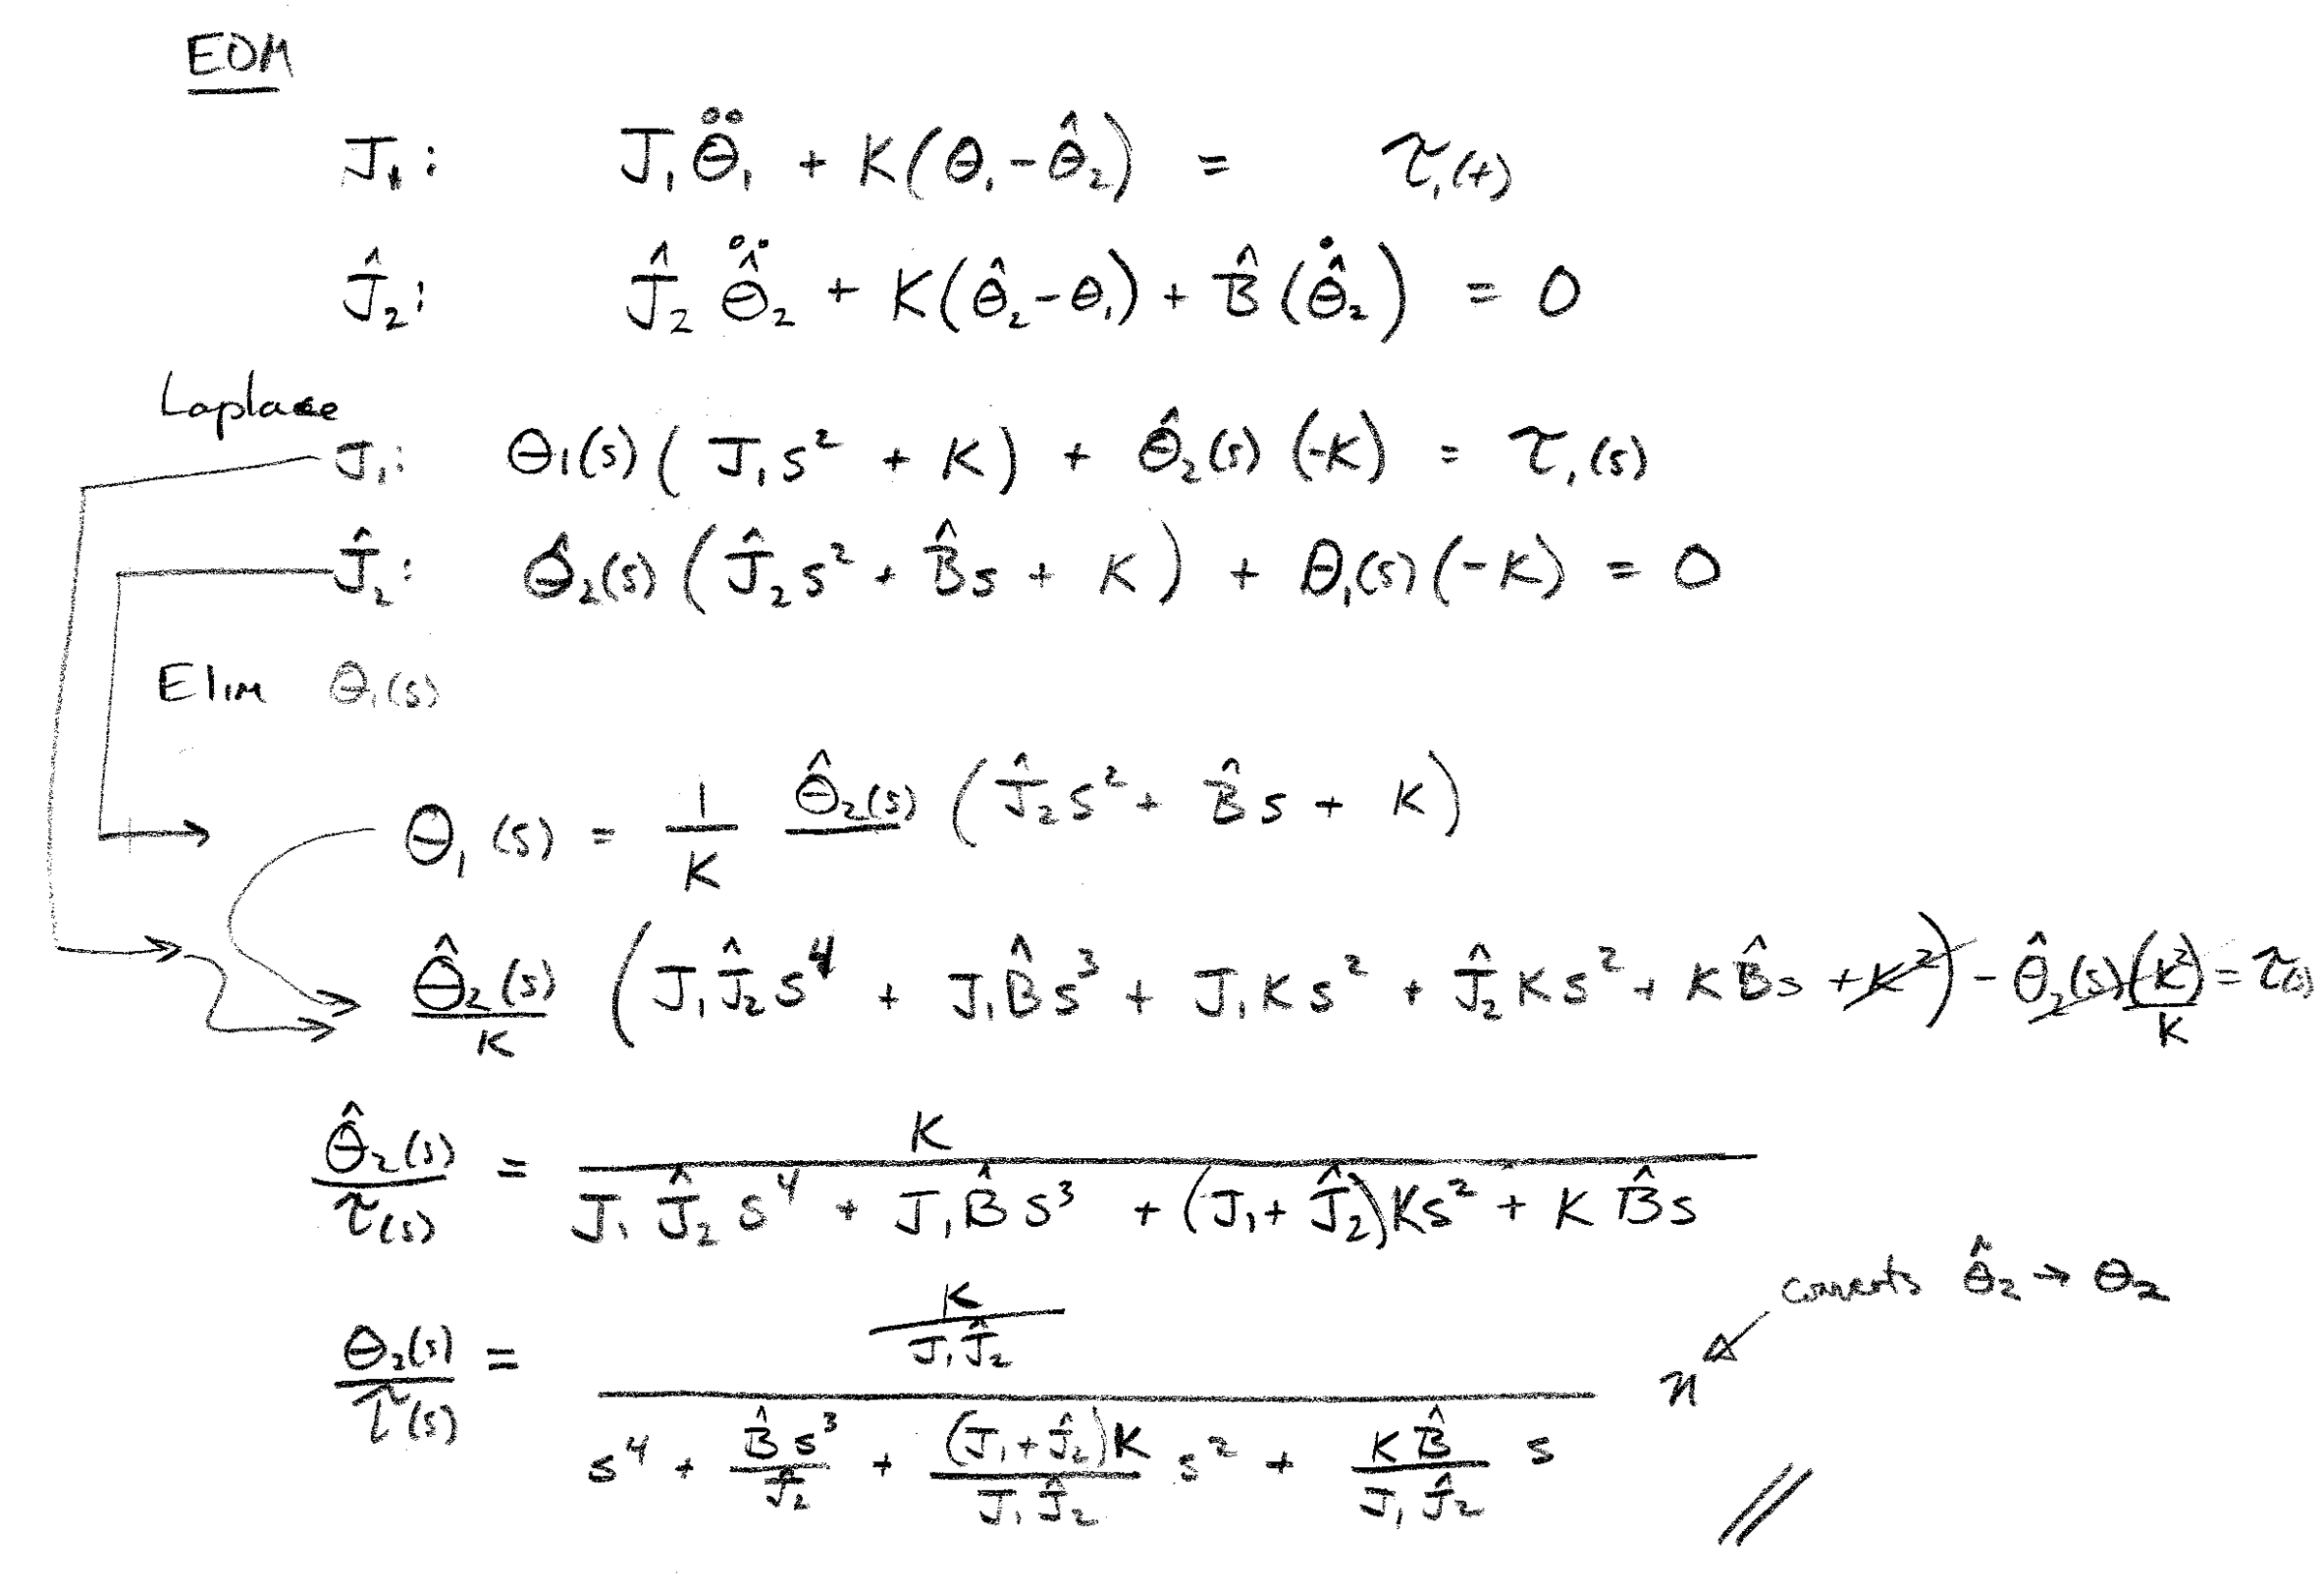 EOM
J₁: J₁θ̈₁ + K(θ₁ - θ̂₂) = τ₁(t)
Ĵ₂: Ĵ₂ θ̂̈₂ + K(θ̂₂ - θ₁) + B̂(θ̂̇₂) = 0
Laplace
J₁: θ₁(s)(J₁s² + K) + θ̂₂(s)(-K) = τ₁(s)
Ĵ₂: θ̂₂(s)(Ĵ₂s² + B̂s + K) + θ₁(s)(-K) = 0
Elim θ₁(s)
θ₁(s) = 1/K θ̂₂(s) (Ĵ₂s² + B̂s + K)
θ̂₂(s)/K (J₁Ĵ₂s⁴ + J₁B̂s³ + J₁Ks² + Ĵ₂Ks² + KB̂s + K²) - θ̂₂(s)(K²)/K = τ(s)
θ̂₂(s)/τ(s) = K / (J₁Ĵ₂s⁴ + J₁B̂s³ + (J₁+Ĵ₂)Ks² + KB̂s)
converts θ̂₂ → θ₂
θ₂(s)/τ(s) = (K/(J₁Ĵ₂)) / (s⁴ + B̂s³/Ĵ₂ + ((J₁+Ĵ₂)K/(J₁Ĵ₂)) s² + (KB̂/(J₁Ĵ₂)) s) n //